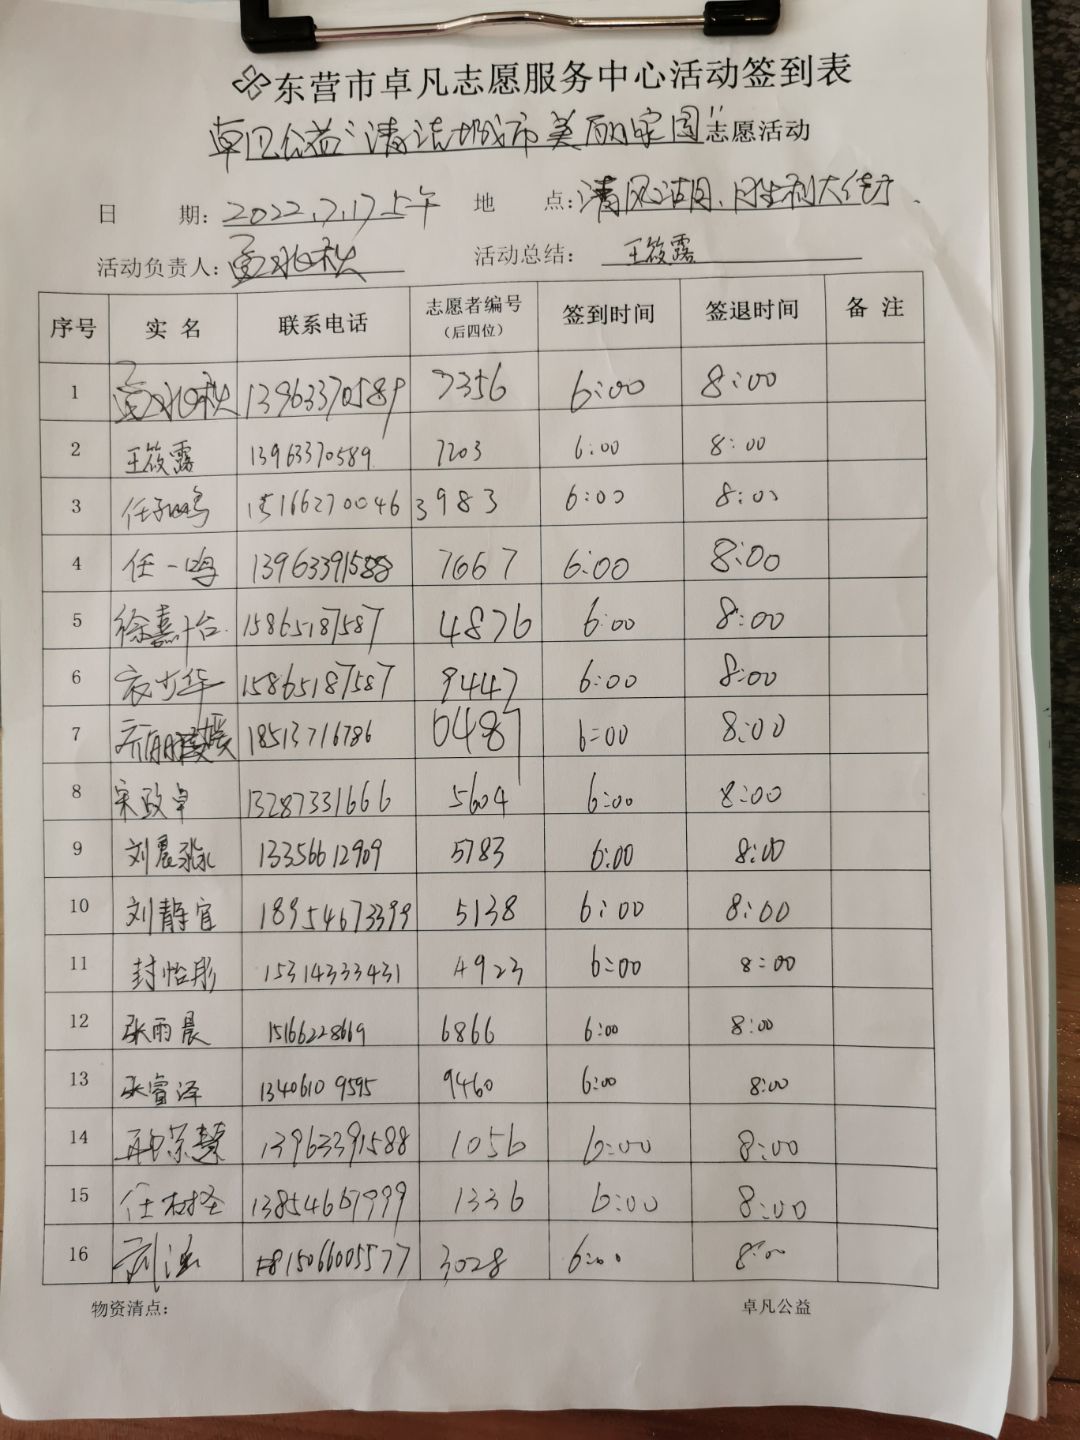 东营市卓凡志愿服务中心活动签到表
卓凡公益"清洁城市美丽家园"志愿活动
日 期: 2022.7.17上午 地 点: 清风湖、胜利大街
活动负责人: 活动总结: 王筱露
序号 实名 联系电话 志愿者编号(后四位) 签到时间 签退时间 备注
1 13963370589 7356 6:00 8:00
2 王筱露 13963370589 7203 6:00 8:00
3 任 15166270046 3983 6:00 8:00
4 任一鸣 13963391588 7667 6:00 8:00
5 徐嘉 15865187587 4876 6:00 8:00
6 衣少华 15865187587 9447 6:00 8:00
7 18513716786 0487 6:00 8:00
8 宋政卓 13287331666 5604 6:00 8:00
9 刘晨 13356612909 5783 6:00 8:00
10 刘静宜 18954673399 5138 6:00 8:00
11 封怡彤 15314333431 4923 6:00 8:00
12 张雨晨 15166228669 6866 6:00 8:00
13 张萱泽 13406109595 9460 6:00 8:00
14 荣慧 13963391588 1056 6:00 8:00
15 任 1336 6:00 8:00
16 15066005577 3028 6:00 8:00
物资清点: 卓凡公益